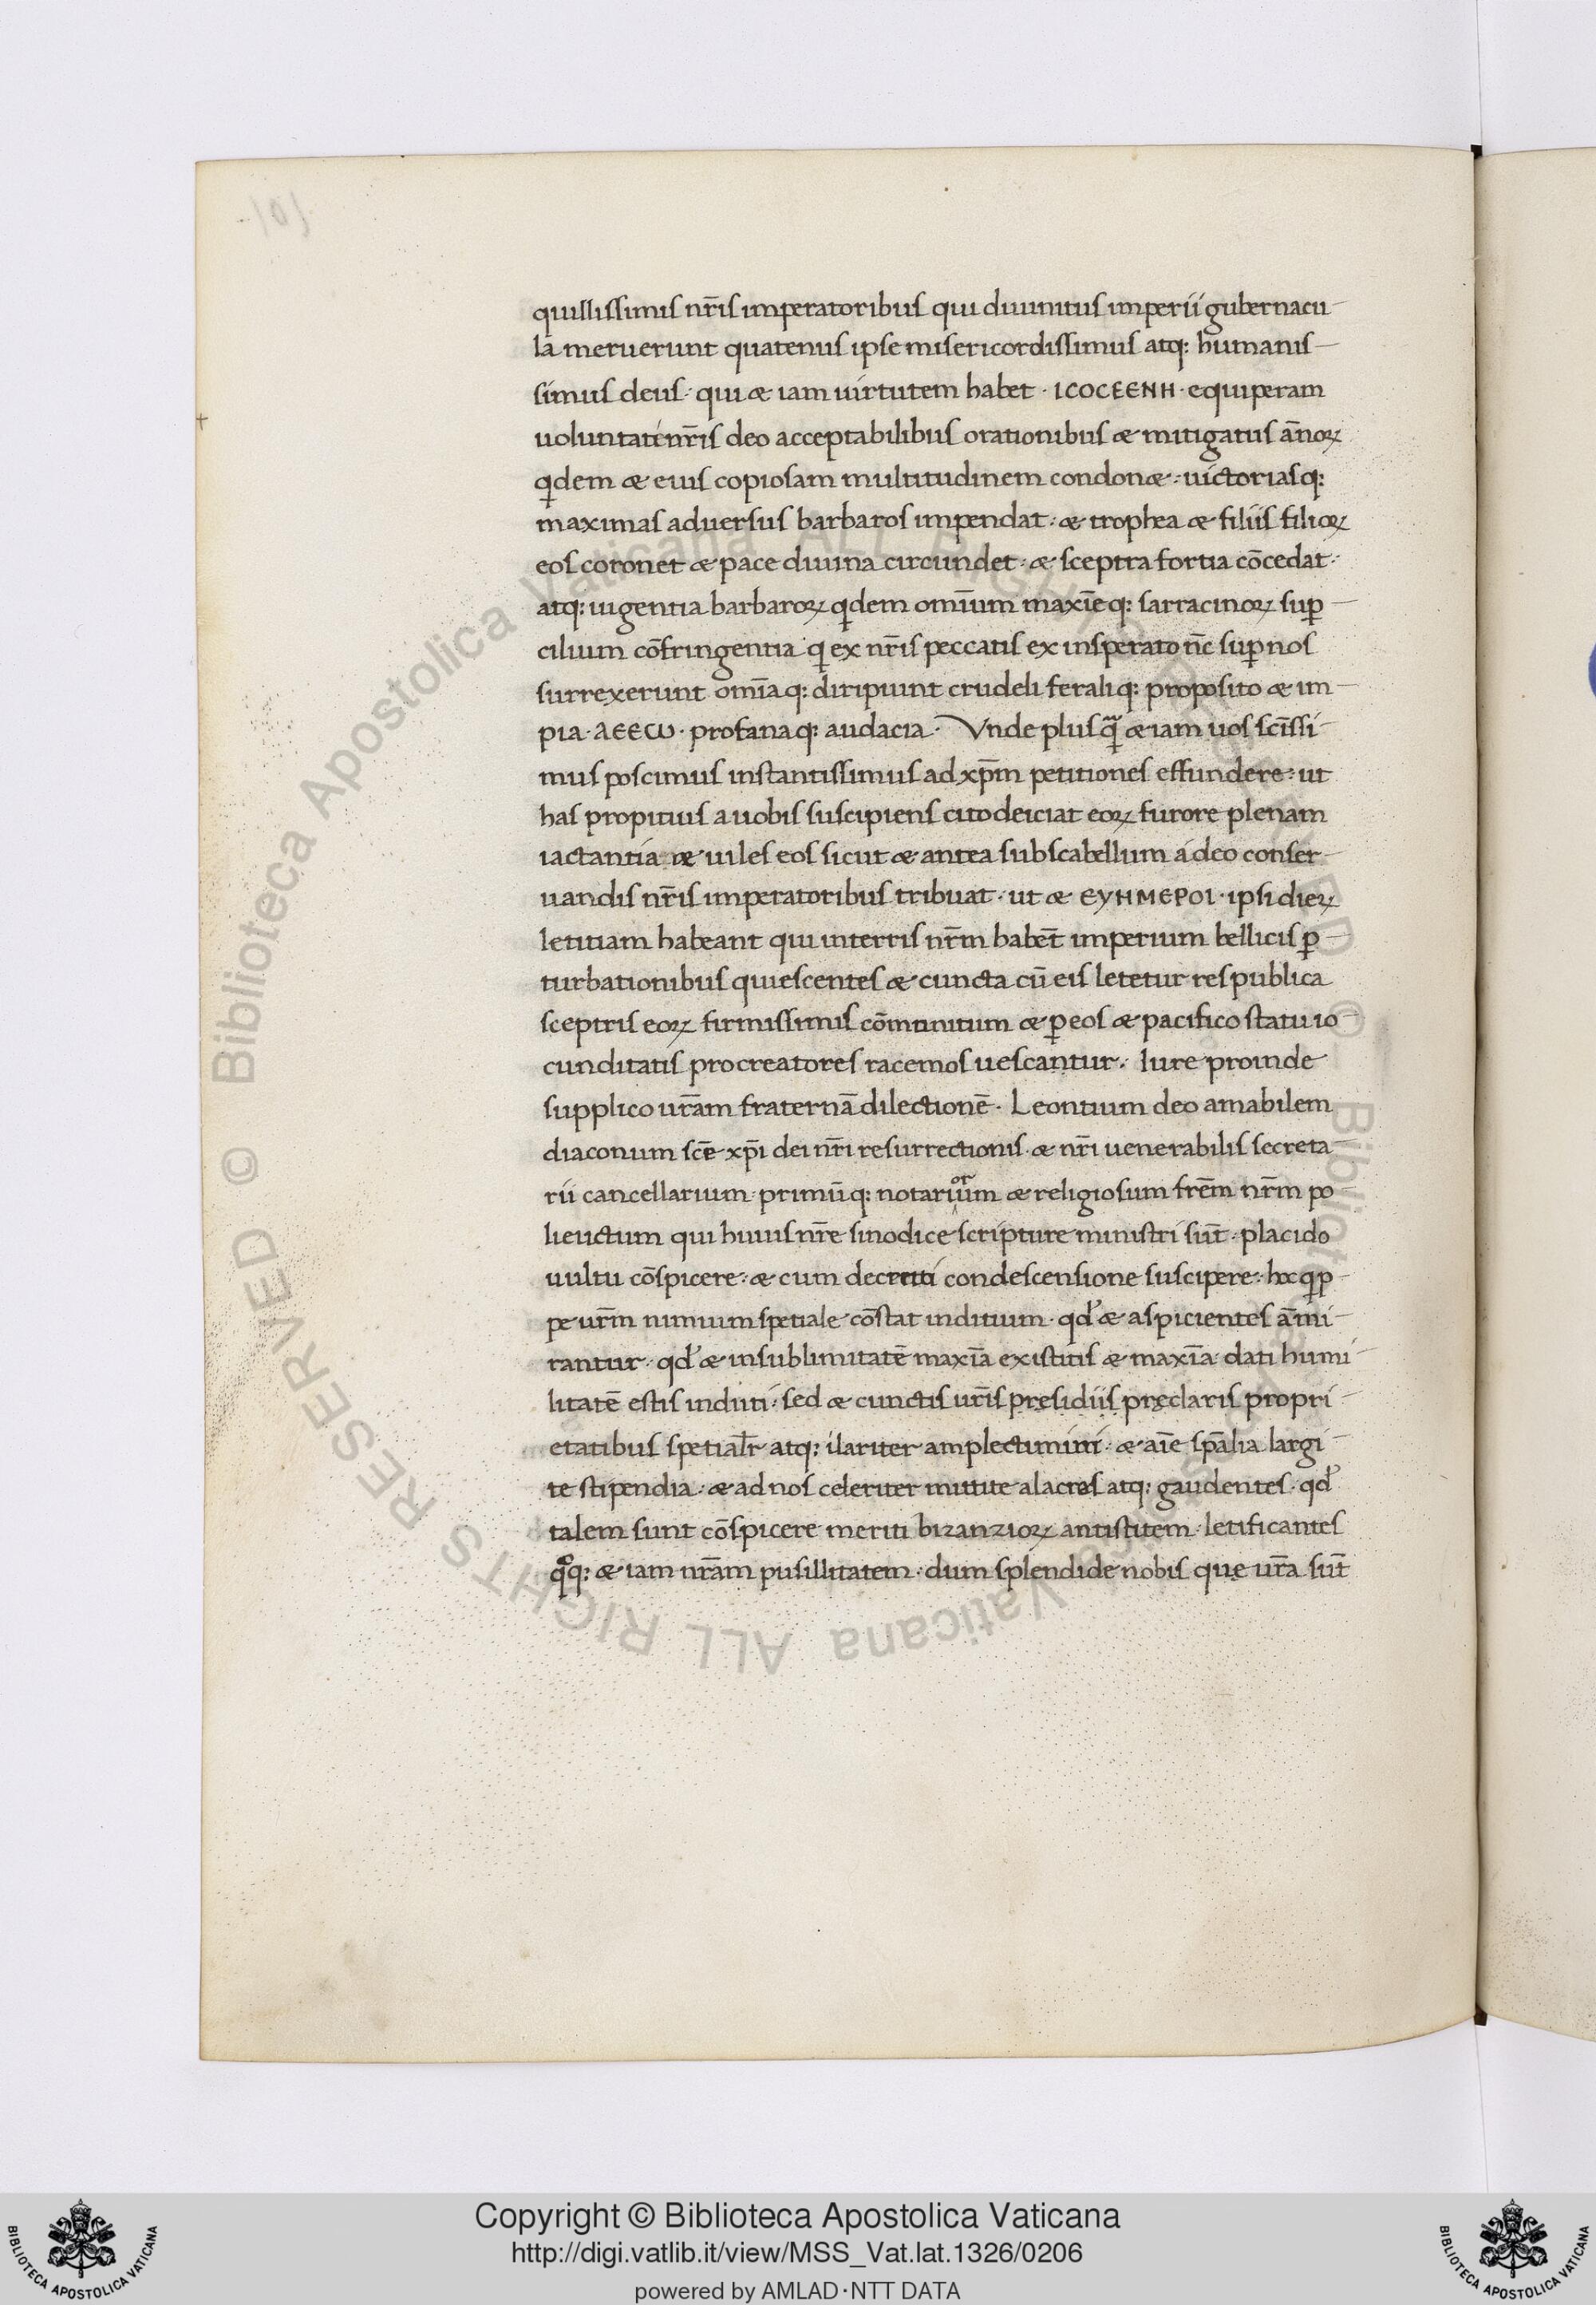 quillissimis nr̄is imperatoribus qui diuinitus imperii gubernacu-
la meruerunt quatenus ipse misericordissimus atq: humanis-
simus deus· qui æ iam uirtutem habet · ICOCEENH · equiperam
uoluntatē nr̄is deo acceptabilibus orationibus æ mitigatus ān̄oꝝ
qͥdem æ eius copiosam multitudinem condonæ · uictoriasq:
maximas aduersus barbaros impendat · æ trophea æ filiis filioꝝ
eos coronet æ pace diuina circundet · æ sceptra fortia cōcedat ·
atq: uigentia barbaroꝝ qͥdem omīum maxīeq: sarracinoꝝ suꝑ-
cilium cōfringentia qͥ ex nr̄is peccatis ex insperato nc̄ suꝑ nos
surrexerunt omīaq: diripiunt crudeli feraliq: proposito æ im-
pia · AEECω · profanaq: audacia · Vnde plusqᷓ æ iam uos scīssi-
mus poscimus instantissimus ad xp̄m petitiones effundere · ut
has propitius a uobis suscipiens cito deiciat eoꝝ furore plenam
iactantia æ uiles eos sicut æ antea subscabellum a deo conser-
uandis nr̄is imperatoribus tribuat · ut æ EYHMEPOI · ipsi dieꝝ
letitiam habeant qui interris nr̄m habēt imperium bellicis ꝑ-
turbationibus quiescentes æ cuncta cū eis letetur respublica
sceptris eoꝝ firmissimis cōmunitum æ ꝑ eos æ pacifico statu io-
cunditatis procreatores racemos uescantur · Iure proinde
supplico ur̄am fraternā dilectionē · Leontium deo amabilem
diaconum scē xp̄i dei nr̄i resurrectionis · æ nr̄i uenerabilis secreta-
rii cancellarium · primūq: notariuūm æ religiosum frēm nr̄m po-
lieuctum qui huius nr̄e sinodice scripture ministri sūt · placido
uultu cōspicere · æ cum decreti condescensione suscipere · hoc qͥp-
pe ur̄m nimium spetiale cōstat inditium · qd̓ æ aspicientes ām̄i-
rantur · qd̓ æ insublimitatē maxīa existitis æ maxīa dati humi-
litatē estis induti · sed æ cunctis ur̄is pręsidiis pręclaris propri-
etatibus spetialr̄ atq: ilariter amplectimini · æ aīe sp̄alia largi-
te stipendia · æ ad nos celeriter mittite alacres atq: gaudentes · qd̓
talem sunt cōspicere meriti bizanzioꝝ antistitem · letificantes
qͦq: æ iam nr̄am pusillitatem · dum splendide nobis quę ur̄a sūt
Copyright © Biblioteca Apostolica Vaticana
http://digi.vatlib.it/view/MSS_Vat.lat.1326/0206
powered by AMLAD·NTT DATA